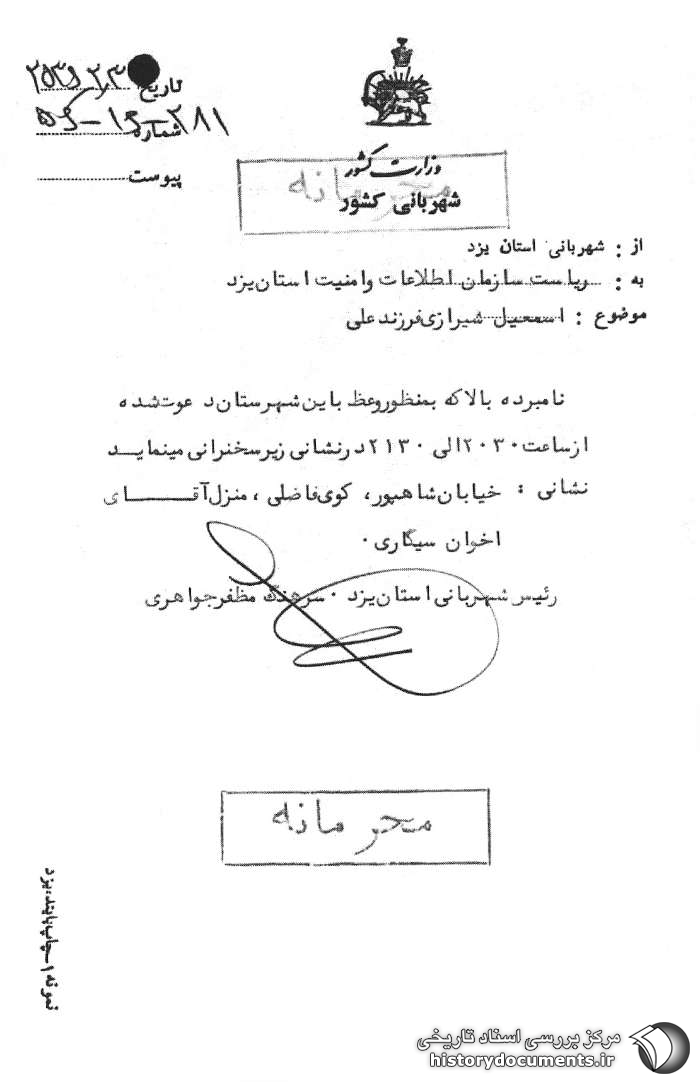 تاریخ
شماره ۲۸۱-۱۶-۵۶
پیوست
وزارت کشور
محرمانه
شهربانی کشور
از : شهربانی استان یزد
به : ریاست سازمان اطلاعات وامنیت استان یزد
موضوع : اسمعیل شیرازی فرزند علی
نامبرده بالا که بمنظور وعظ باین شهرستان دعوت شده
از ساعت ۲۰۳۰ الی ۲۱۳۰ در نشانی زیر سخنرانی مینماید
نشانی : خیابان شاهپور، کوی فاضلی ، منزل آقــــای
اخوان سیگاری .
رئیس شهربانی استان یزد . سرهنگ مظفر جواهری
محرمانه
نمونه ۱ـ چاپ پاینده یزد
مرکز بررسی اسناد تاریخی
historydocuments.ir